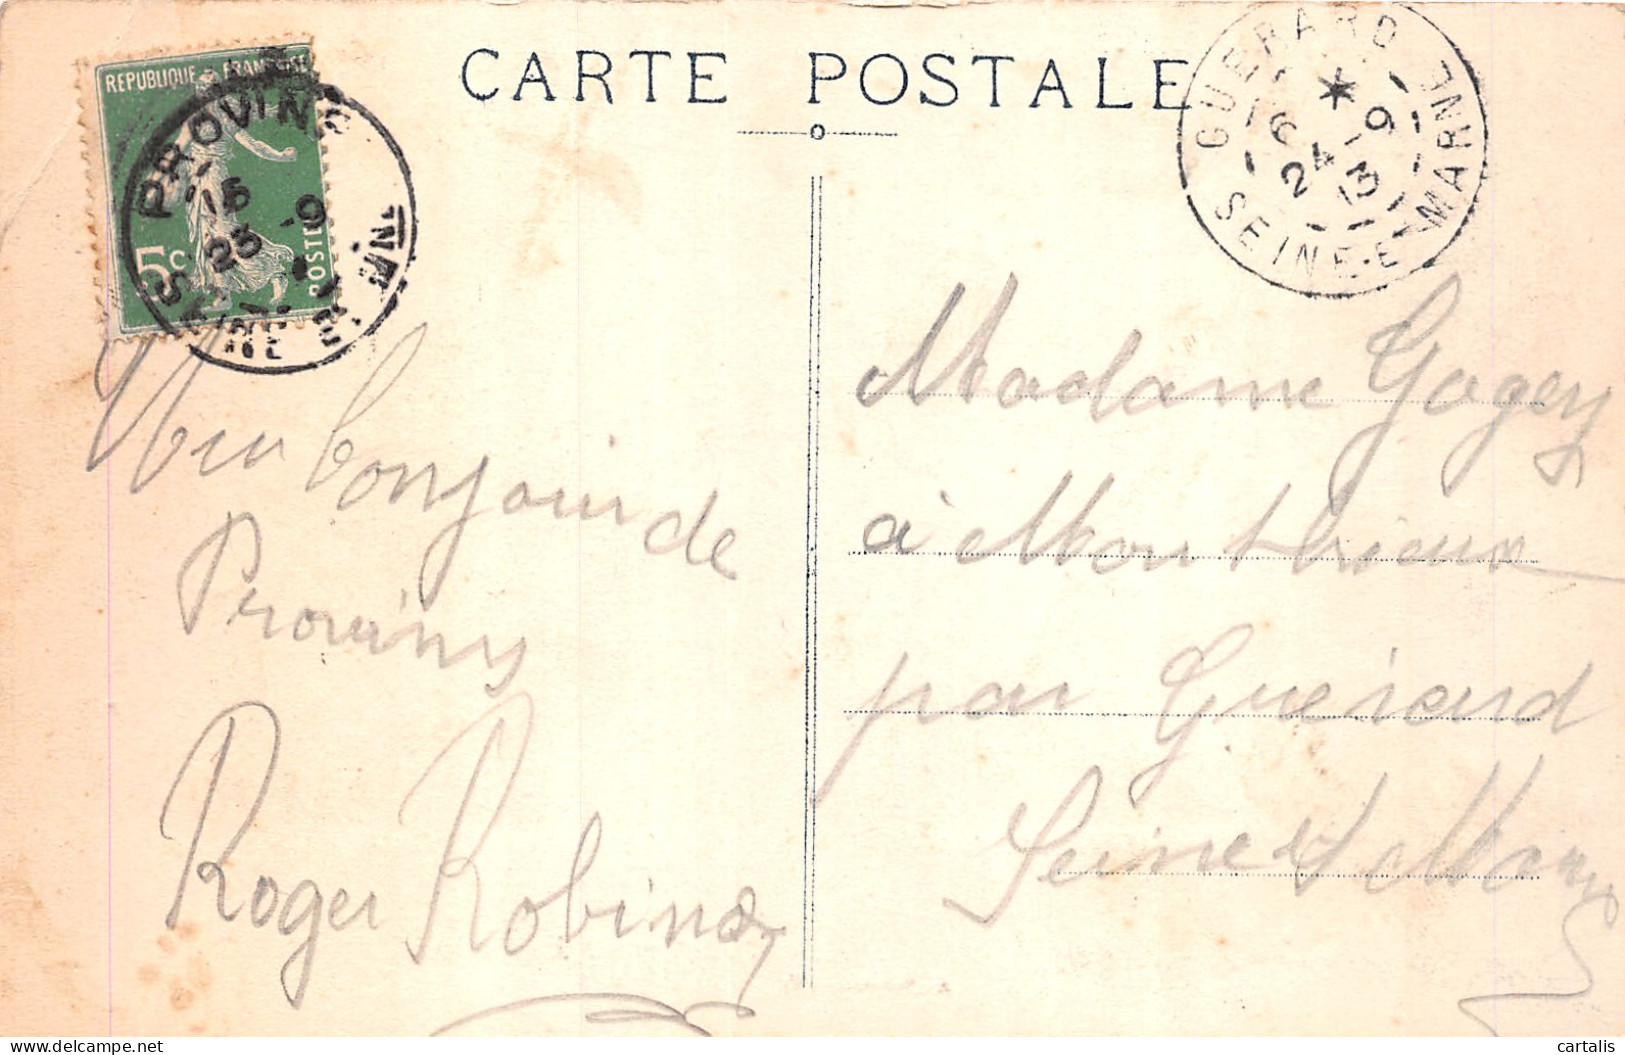 CARTE POSTALE
REPUBLIQUE FRANÇAISE
5c
POSTES
PROVINS
15
23 -9
SEINE ET
GUERARD
*
6
24 -9
13
SEINE-ET-MARNE
Un bonjour de
Provins
Roger Robinet
Madame Gogey
à Monthérieux
par Guérard
Seine et Marne
cartalis